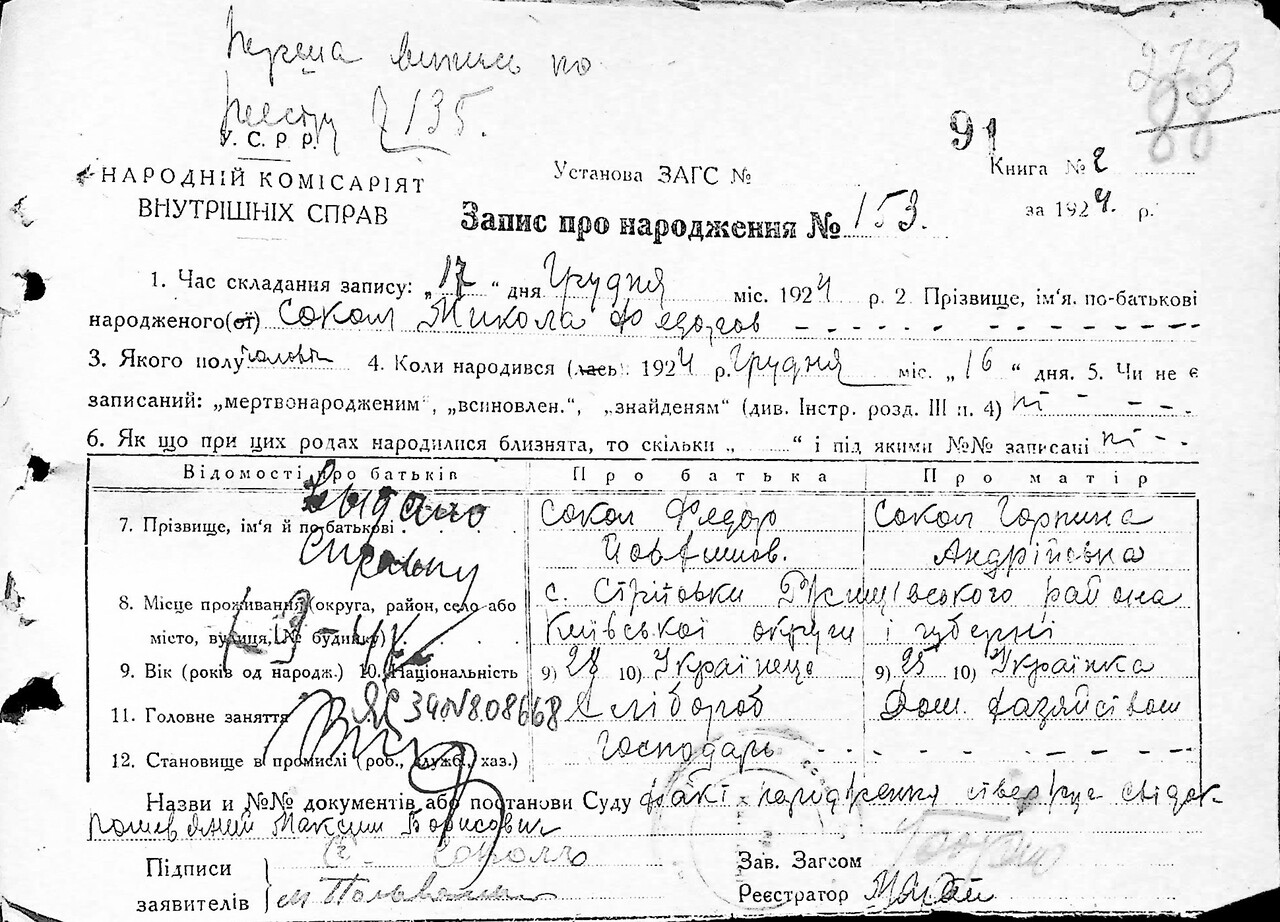 Перша випись по
реєстру № 135.
273
88
У.С.Р.Р.
91
НАРОДНІЙ КОМІСАРІЯТ
ВНУТРІШНІХ СПРАВ
Установа ЗАГС №
Книга № 2
за 1924. р.
Запис про народження № 153.
1. Час складання запису: „17“ дня Грудня міс. 1924 р. 2. Прізвище, ім'я. по-батькові
народженого(от) Сокол Микола Федоров
3. Якого полу чолов. 4. Коли народився (лась). 1924 р. Грудня міс. „16“ дня. 5. Чи не є
записаний: „мертвонародженим“, „всиновлен.“, „знайденям“ (див. Інстр. розд. III п. 4) ні
6. Як що при цих родах народилися близнята, то скільки „ “ і під якими №№ записані ні
Відомості про батьків Про батька Про матір
Видано
справку
7. Прізвище, ім'я й по-батькові Сокол Федор Сокол Горпина
Андрійовна
8. Місце проживання (округа, район, село або
місто, вулиця, № будинку) с. Стрітовки Ржищівського района
Київської округи і губерні
9. Вік (років од народж.) 10. Національність 9) 28 10) Українець 9) 25 10) Українка
11. Головне заняття Хлібороб Дом. хазяйством
12. Становище в промислі (роб., служб., хаз.) Господарь
Назви и №№ документів або постанови Суду факт народження ствержує свідок
Максим Борисович
Підписи
заявителів
Зав. Загсом
Реєстратор